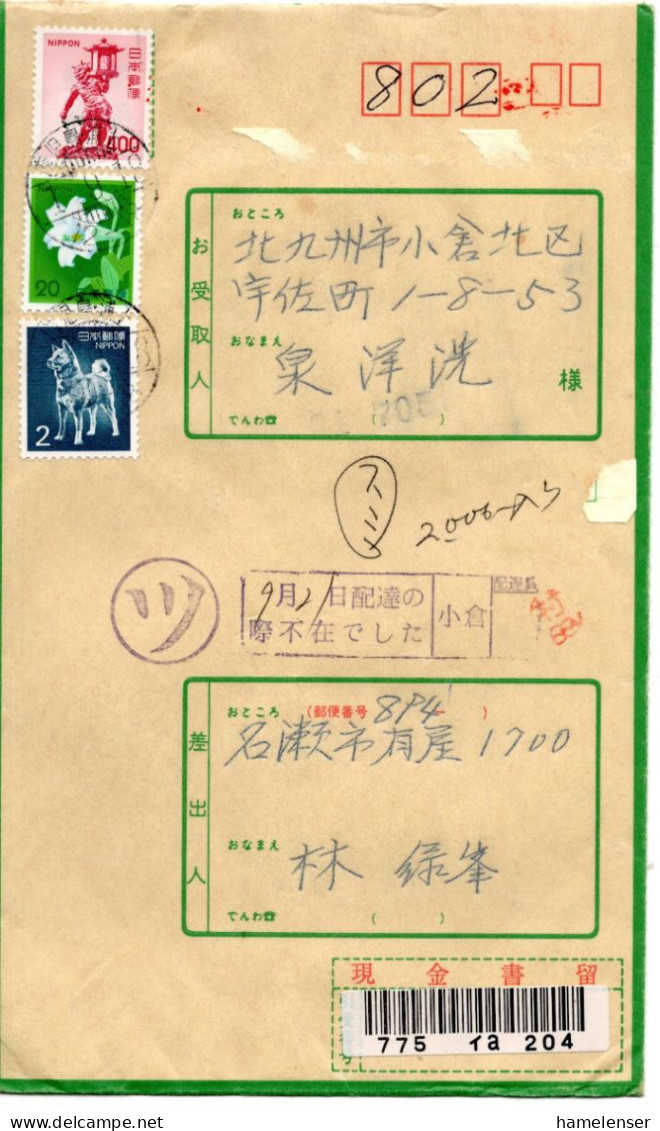 NIPPON
日本郵便
400
NIPPON
20
日本郵便
NIPPON
2
802
お受取人
おところ
北九州市小倉北区
宇佐町1-8-53
おなまえ
泉洋洸
様
でんわ☎ ( )
705
スミ
ツ
9月21日配達の
際不在でした
小倉
配達員
差出人
おところ (郵便番号 894 )
名瀬市有屋1700
おなまえ
林緑峯
でんわ☎ ( )
現金書留
775 イa 204
hamelenser